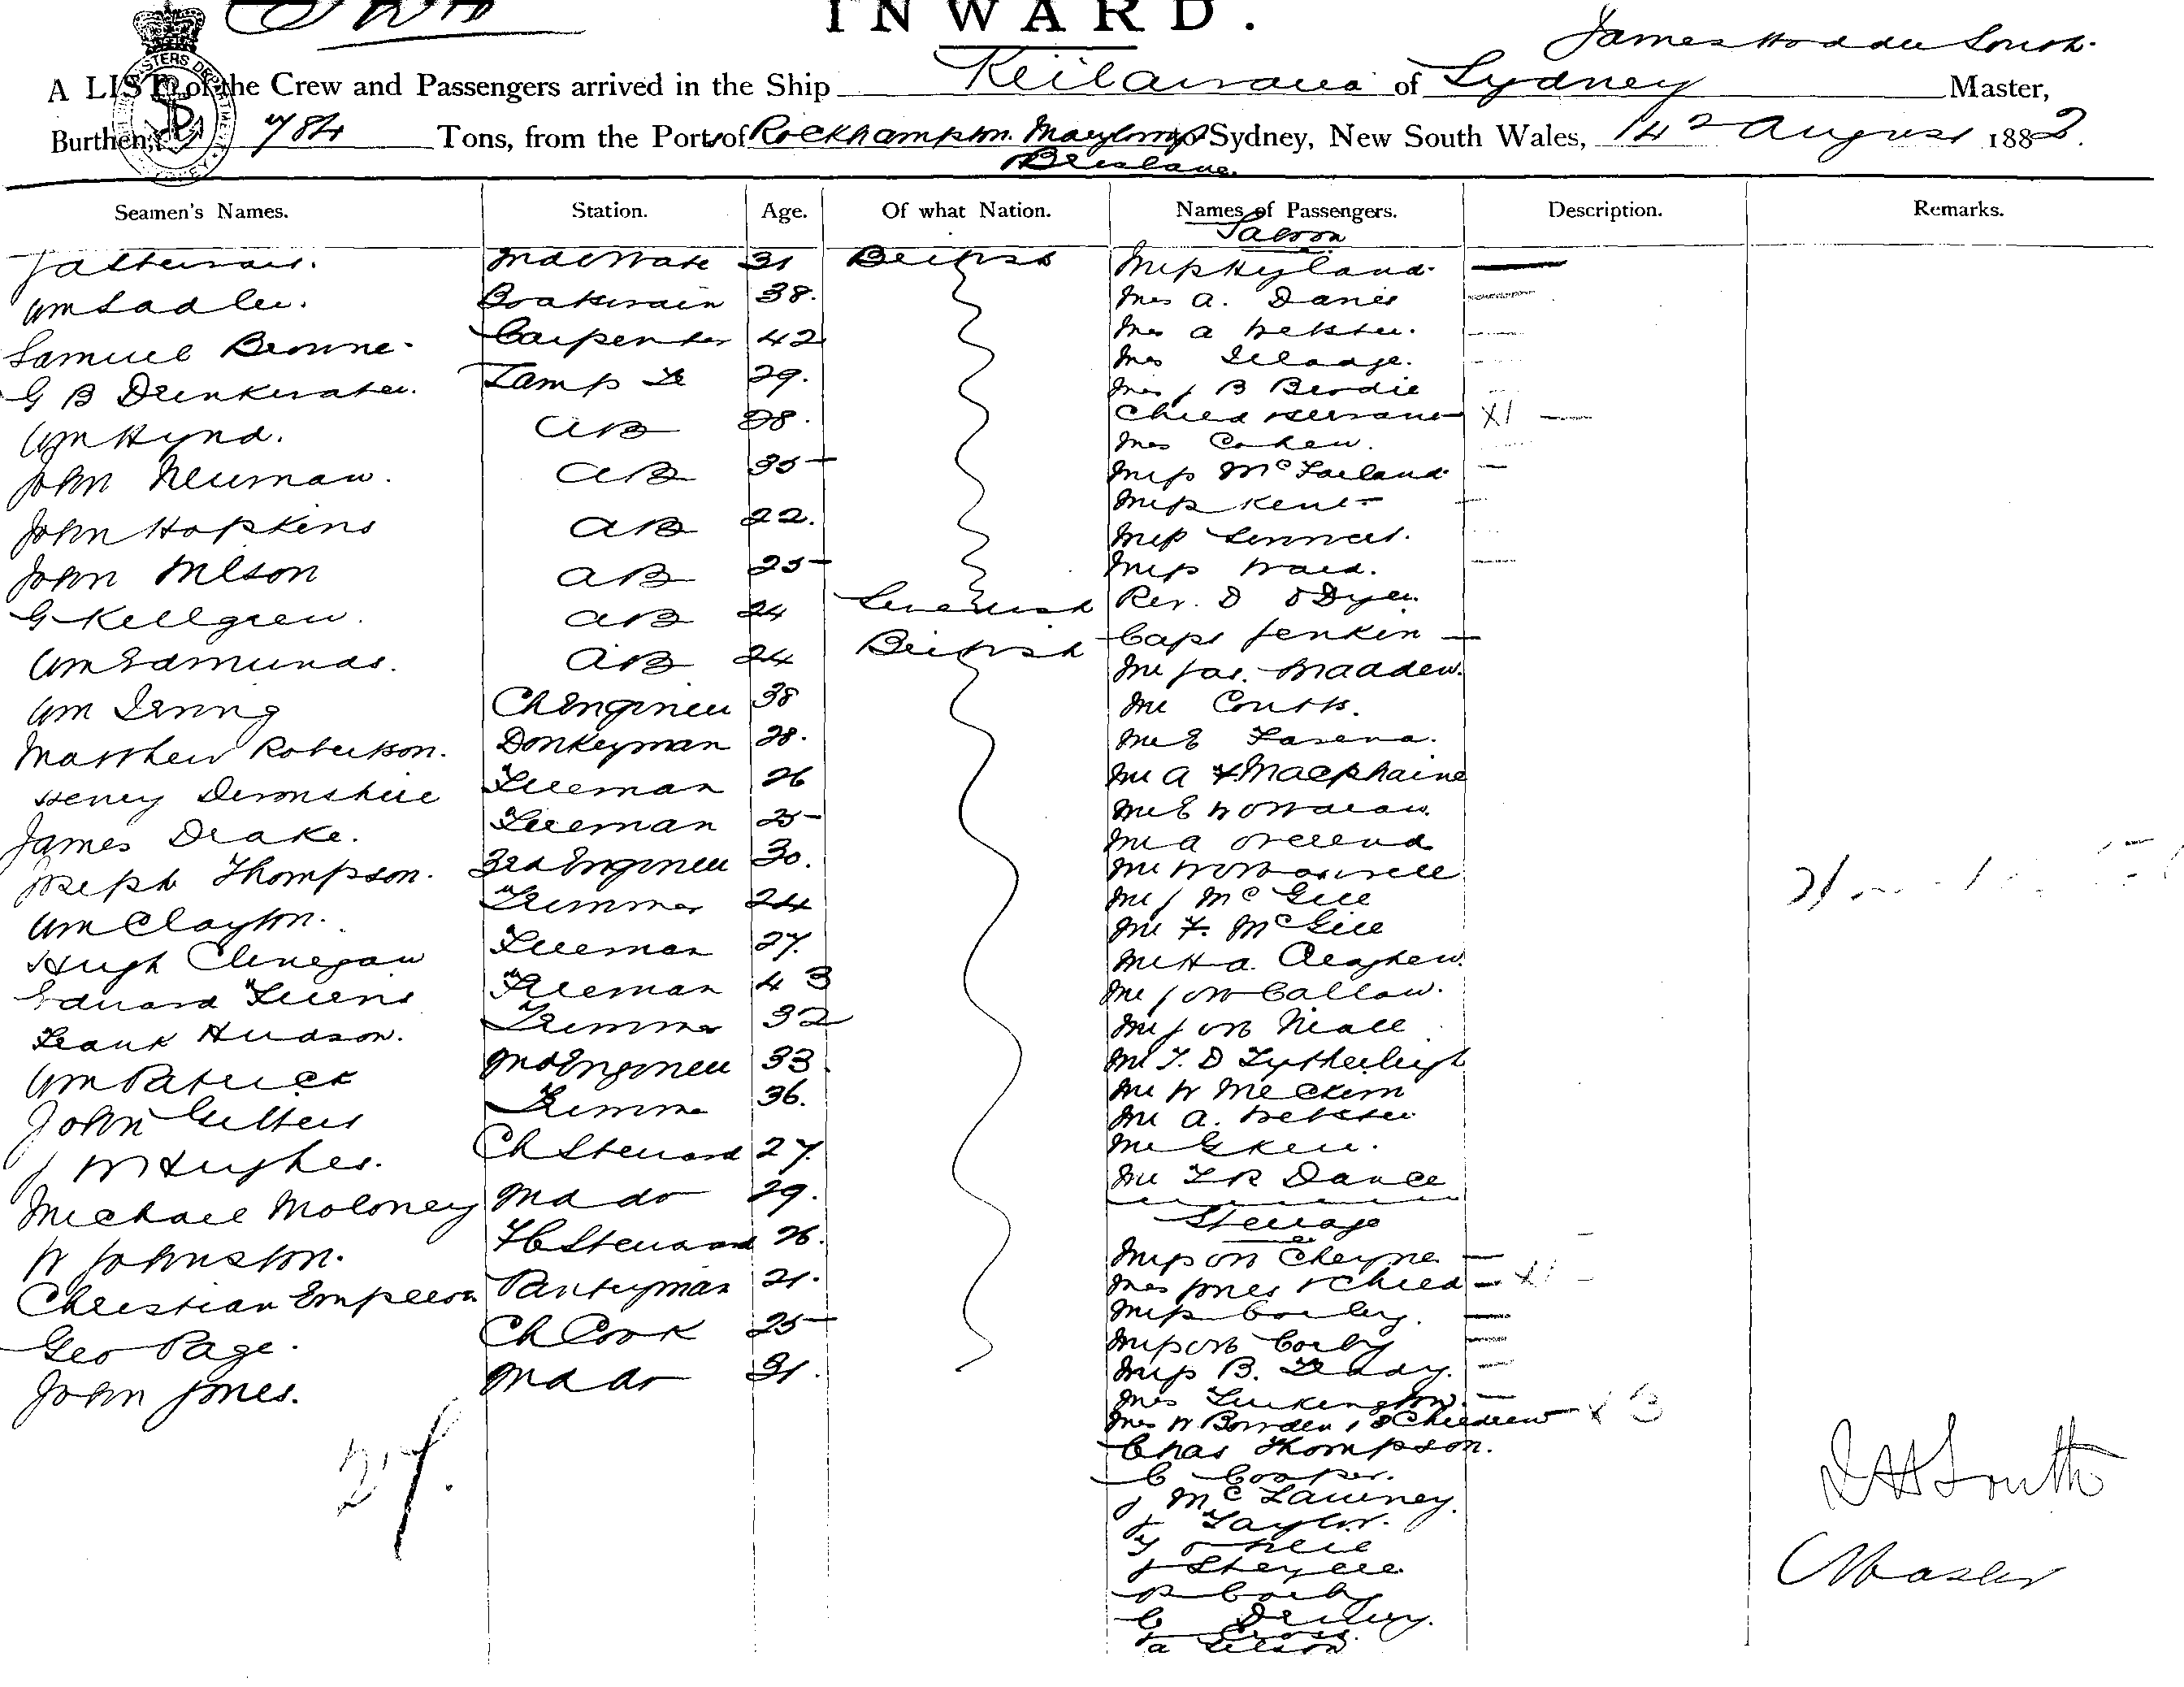 INWARD.
James Hodder South.
A LIST of the Crew and Passengers arrived in the Ship Keilawarra of Sydney Master,
Burthen, 784 Tons, from the Ports of Rockhampton. Marybro to Sydney, New South Wales, 14 August 1882.
Brisbane.
Seamen's Names. Station. Age. Of what Nation. Names of Passengers. Description. Remarks.
Saloon
2nd Mate 31 British Miss Hyland
Wm Sadler. Boatswain 38. Mrs A. Davies
Samuel Browne. Carpenter 42 Mrs A Webster.
G B Drinkwater. Lamp Tr 29. Mrs
Mrs J B Brodie
Wm Hynd. AB 28. Child & Servant X1
Mrs Cohen.
John Neuman. AB 35 Miss McFarland
Miss Kent
John Hopkins AB 22. Miss
John Wilson AB 25 Miss Ward.
G Kellgren. AB 24 Swedish Rev. D O'Dyer
Wm Edmunds. AB 24 British Capt Jenkin
Mr Jas. Madden.
Wm Irving Ch Engineer 38 Mr Coutts.
Matthew Robertson. Donkeyman 28. Mr E
Henry Devonshire Fireman 26 Mr A
James Drake. Fireman 25 Mr E
Mr A
Joseph Thompson. 3rd Engineer 30. Mr W
Wm Clayton. Trimmer 24 Mr J McGill
Mr F. McGill
Hugh Clenegan Fireman 27. Mr H A.
Edward Fireman 43 Mr J W Callow.
Frank Hudson. Trimmer 32 Mr J W Niall
Wm Patrick 2nd Engineer 33 Mr T. D Lytherleigh
John Gilbert Trimmer 36. Mr W Meckern
Mr A. Webster
J W Hughes. Ch Steward 27. Mr G Kerr.
Michael Moloney 2nd do 29. Mr F R Dance
Steerage
W Johnston. F C Steward 26. Miss M Cheyne
Christian Pantryman 21. Mrs Jones & Child X1
Miss Corby.
Geo Page. Ch Cook 25 Miss M Corby
John Jones. 2nd do 31. Miss B.
Mrs Turkington.
Mrs W Bowden & 3 Children X 3
27. Chas Thompson.
C Cooper.
J McLauney.
J Taylor.
T O'Neill
J
P Corby
C Drury.
J Cross.
A Gilson
J H South
Master